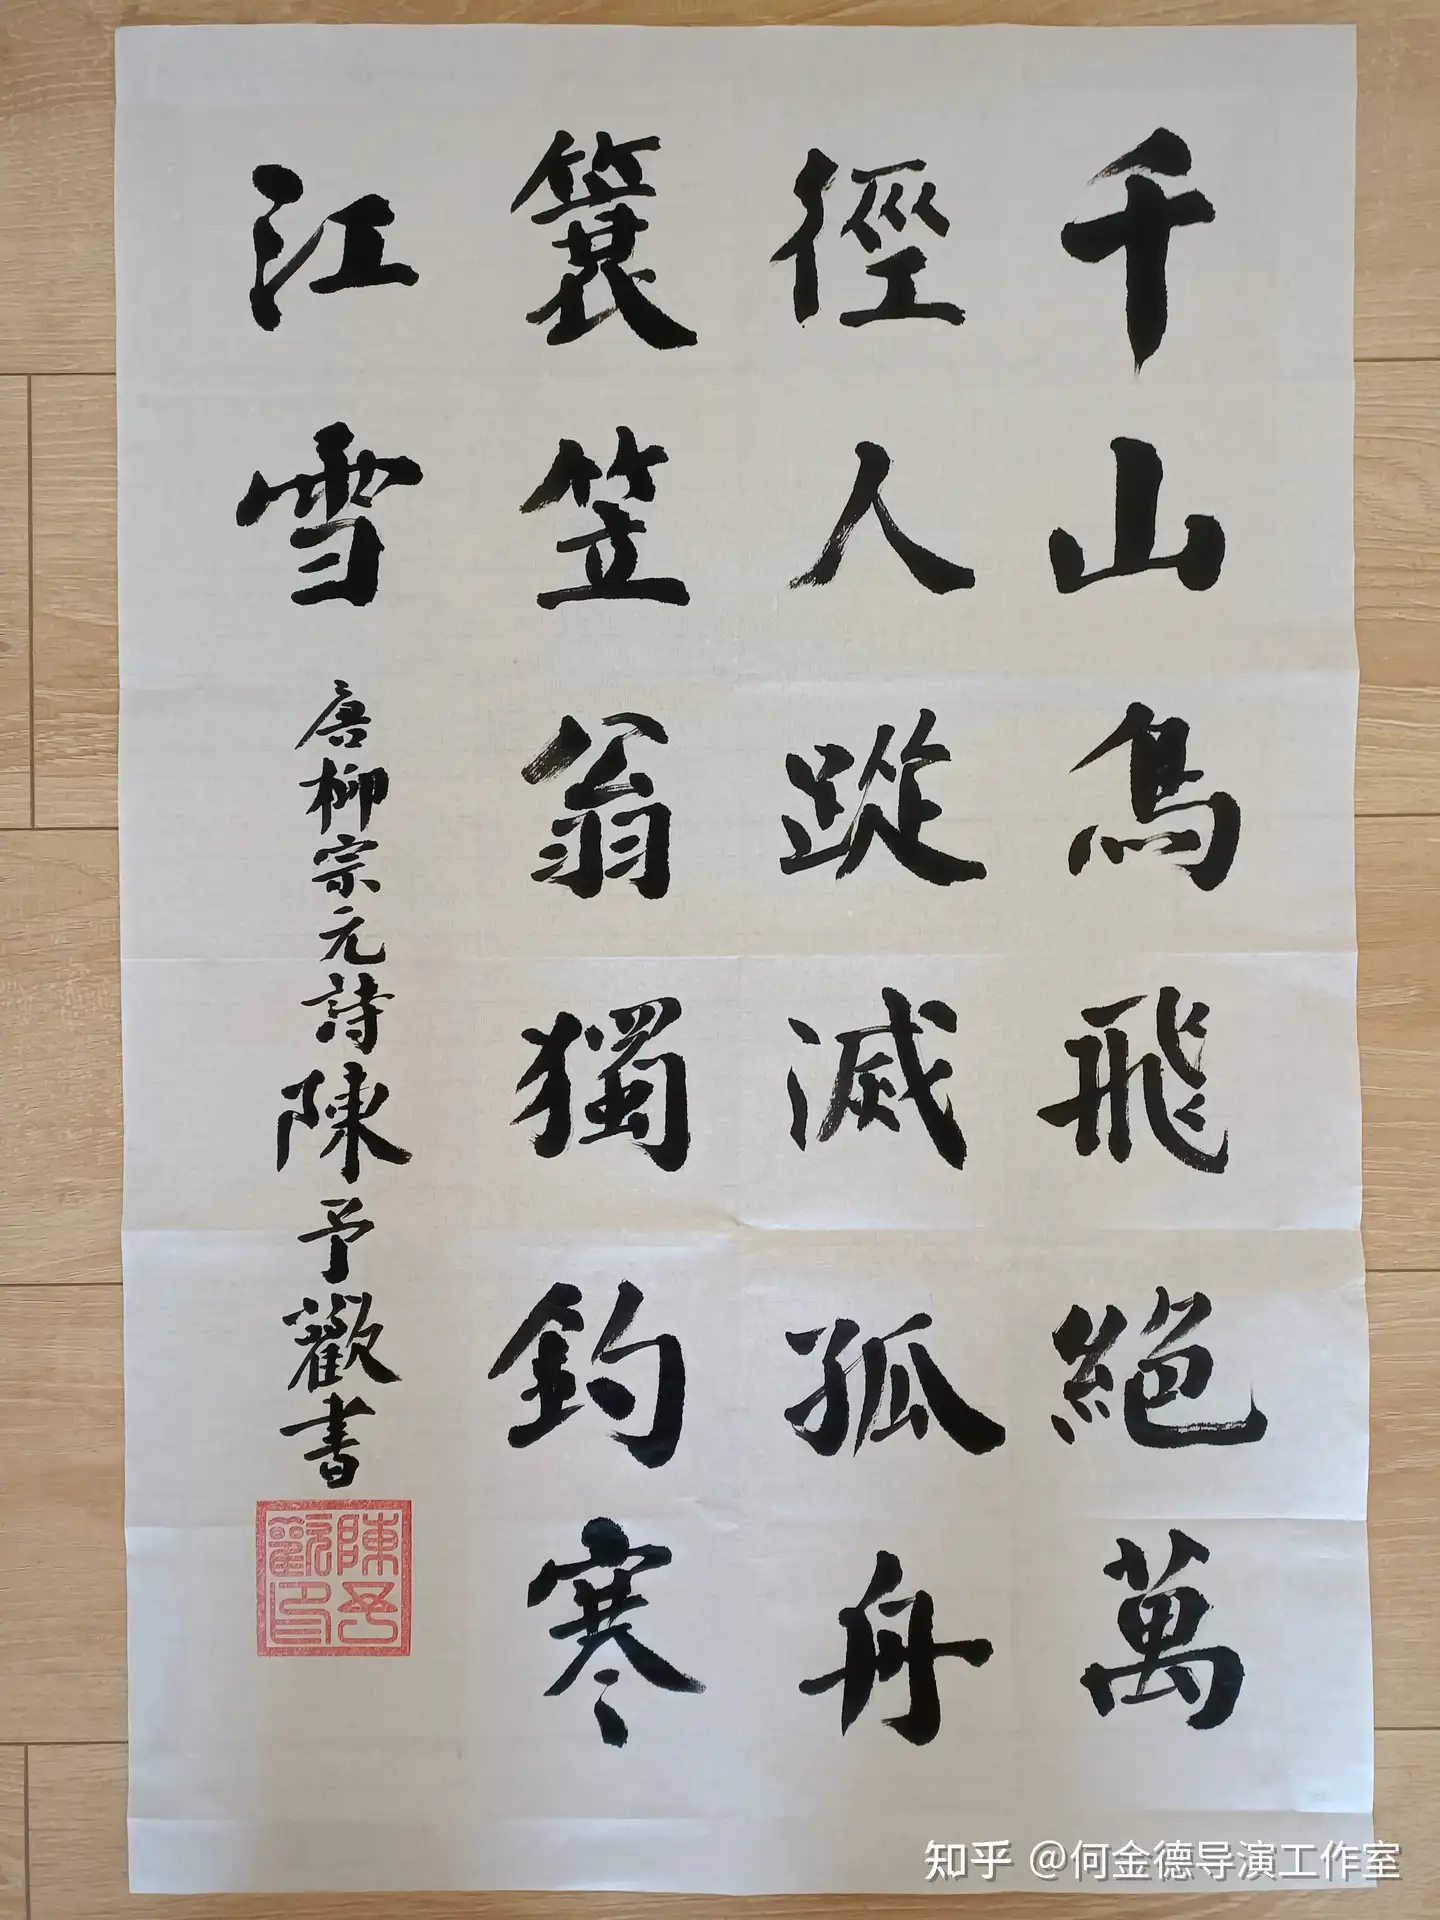 千山鳥飛絕萬
徑人蹤滅孤舟
簑笠翁獨釣寒
江雪
唐柳宗元詩陳予歡書
陳予歡印
知乎 @何金德导演工作室